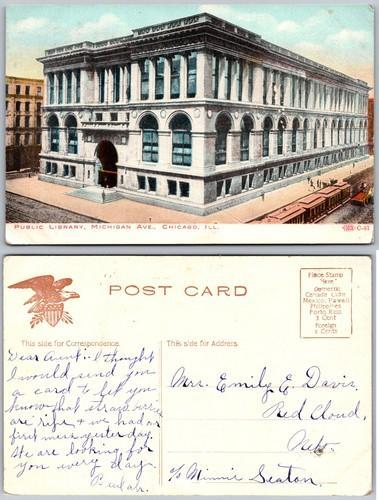 PUBLIC LIBRARY, MICHIGAN AVE., CHICAGO, ILL.
C-83
POST CARD
Place Stamp
"Here"
Domestic
Canada Cuba
Mexico, Hawaii
Philippines
Porto Rico
1 Cent
Foreign
2 Cents
This side for Correspondence.
This side for Address.
Dear Aunt:- I thought
I would send you
a card to let you
know that strawberries
are ripe & we had our
first mess yesterday.
We are looking for
you every day.
Beulah.
Mrs. Emily E. Davis,
Red Cloud,
Nebr.
c/o Minnie Seaton.